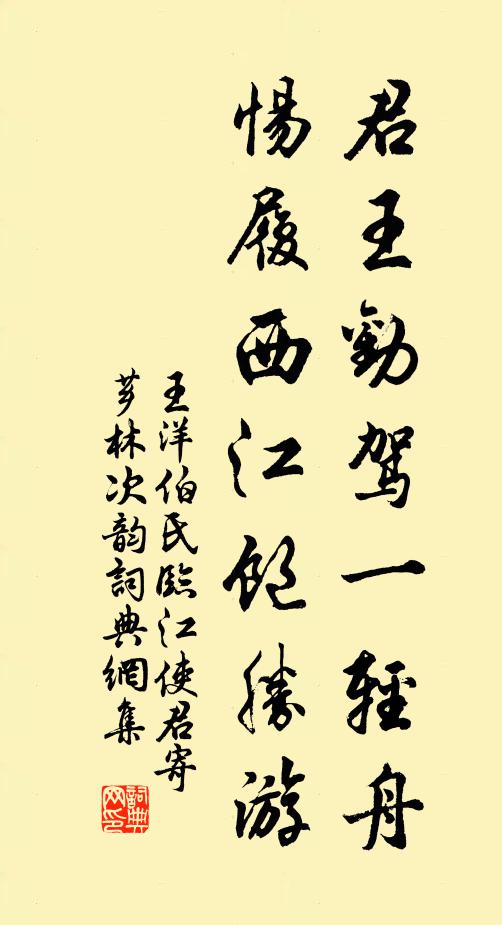 君王勸駕一輕舟
惕履西江飽勝游
王洋伯氏臨江使君寄
芗林次韵詞典網集
詞典網印